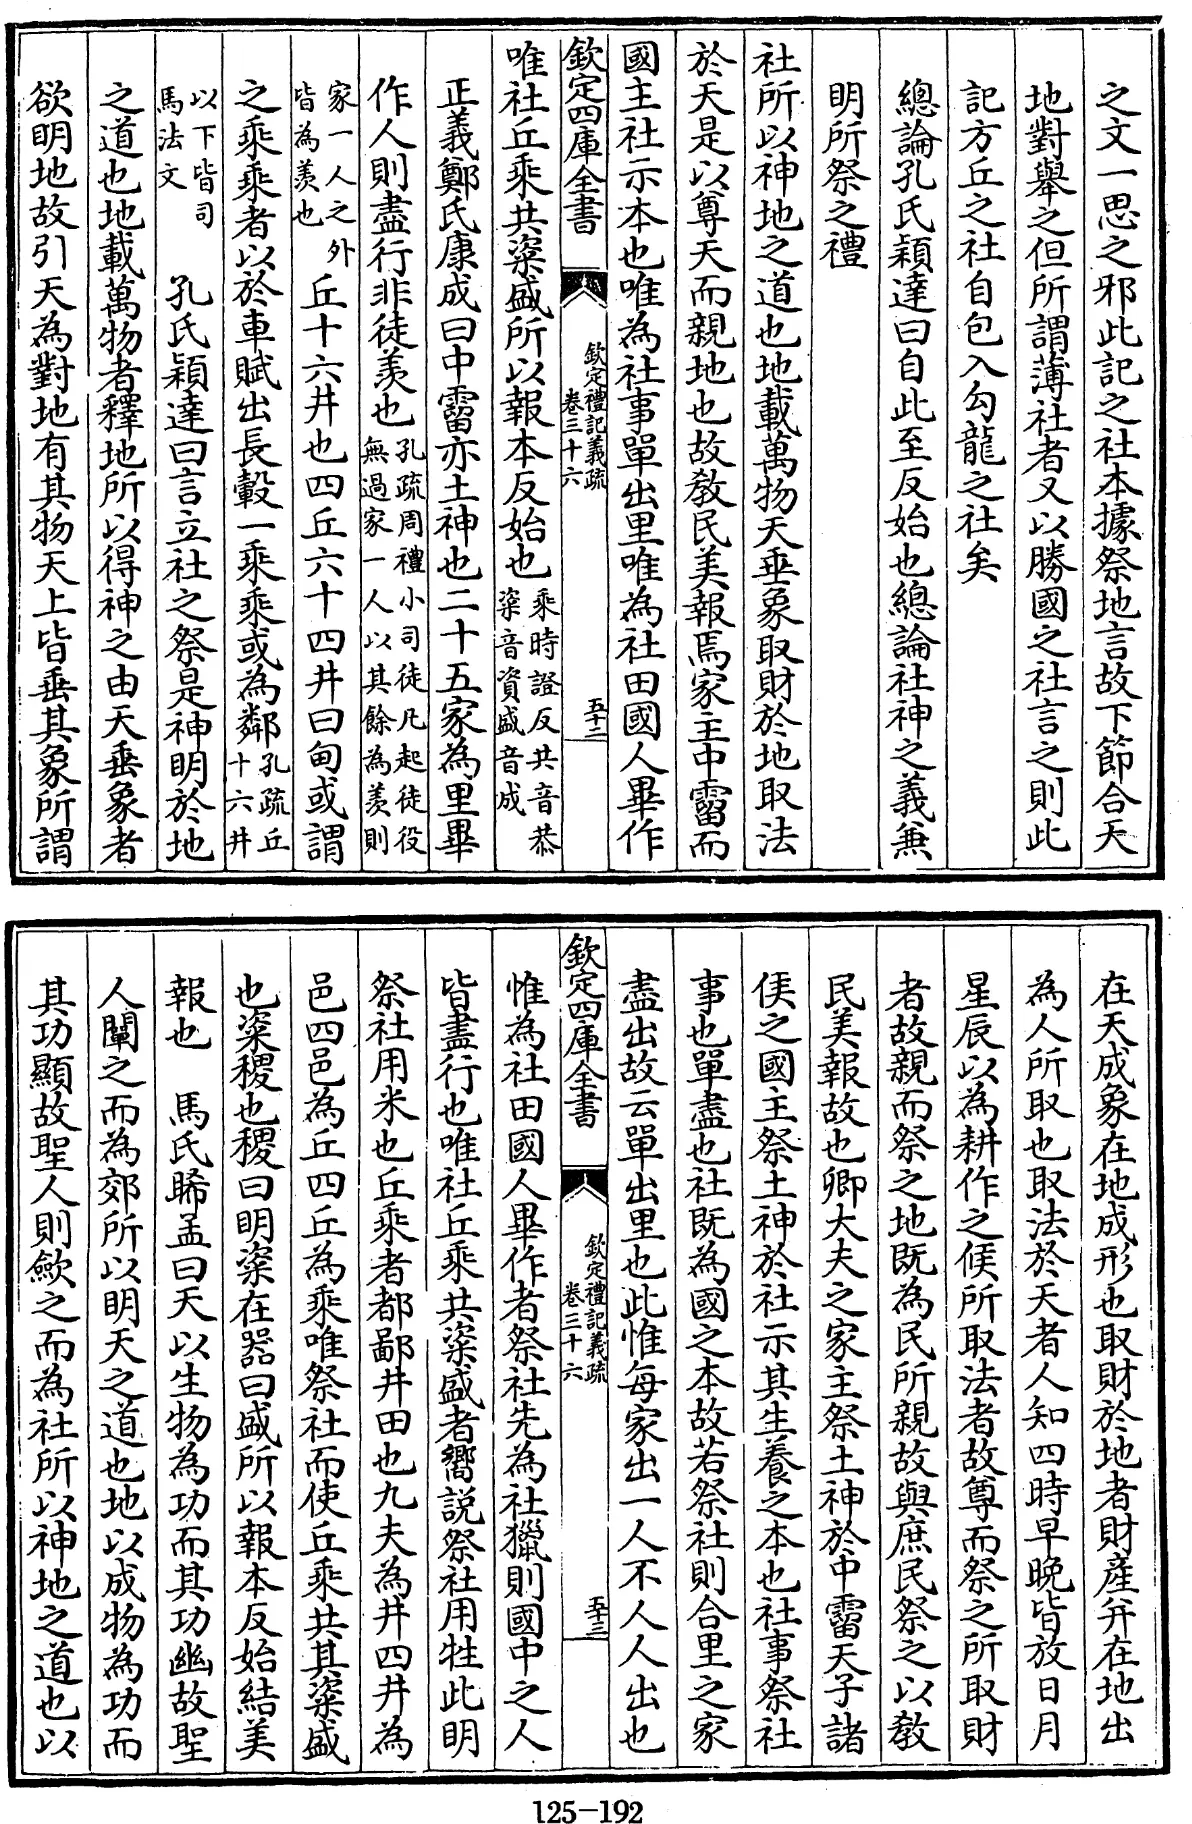 之文一思之邪此記之社本據祭地言故下節合天
地對舉之但所謂薄社者又以勝國之社言之則此
記方丘之社自包入勾龍之社矣
總論孔氏穎達曰自此至反始也總論社神之義兼
明所祭之禮
社所以神地之道也地載萬物天垂象取財於地取法
於天是以尊天而親地也故教民美報焉家主中霤而
國主社示本也唯為社事單出里唯為社田國人畢作
欽定四庫全書
欽定禮記義疏
卷三十六
五十二
唯社丘乘共粢盛所以報本反始也乘時證反共音恭
粢音資盛音成
正義鄭氏康成曰中霤亦土神也二十五家為里畢
作人則盡行非徒羨也孔疏周禮小司徒凡起徒役
無過家一人以其餘為羨則
家一人之外
皆為羨也丘十六井也四丘六十四井曰甸或謂
之乘乘者以於車賦出長轂一乘乘或為鄰孔疏丘
十六井
以下皆司
馬法文孔氏穎達曰言立社之祭是神明於地
之道也地載萬物者釋地所以得神之由天垂象者
欲明地故引天為對地有其物天上皆垂其象所謂
在天成象在地成形也取財於地者財產并在地出
為人所取也取法於天者人知四時早晚皆放日月
星辰以為耕作之候所取法者故尊而祭之所取財
者故親而祭之地既為民所親故與庶民祭之以教
民美報故也卿大夫之家主祭土神於中霤天子諸
侯之國主祭土神於社示其生養之本也社事祭社
事也單盡也社既為國之本故若祭社則合里之家
盡出故云單出里也此惟每家出一人不人人出也
欽定四庫全書
欽定禮記義疏
卷三十六
五十三
惟為社田國人畢作者祭社先為社獵則國中之人
皆盡行也唯社丘乘共粢盛者嚮説祭社用牲此明
祭社用米也丘乘者都鄙井田也九夫為井四井為
邑四邑為丘四丘為乘唯祭社而使丘乘共其粢盛
也粢稷也稷曰明粢在器曰盛所以報本反始結美
報也　馬氏晞孟曰天以生物為功而其功幽故聖
人闡之而為郊所以明天之道也地以成物為功而
其功顯故聖人則歛之而為社所以神地之道也以
125-192